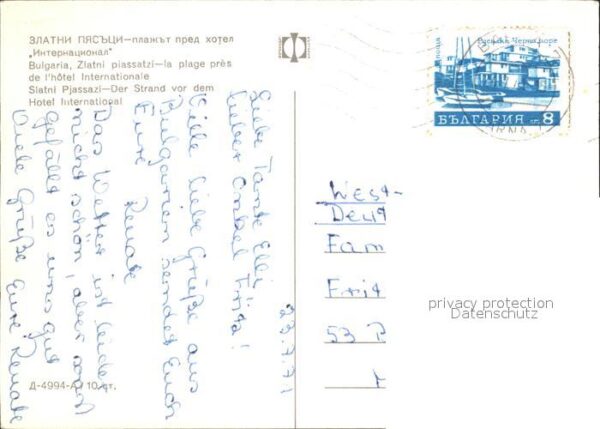 ЗЛАТНИ ПЯСЪЦИ—плажът пред хотел
„Интернационал"
Bulgaria, Zlatni piassatzi—la plage près
de l'hôtel Internationale
Slatni Pjassazi—Der Strand vor dem
Hotel International
Д-4994-А
10 ст.
23.7.71
Liebe Tante Elli
lieber Onkel Fritz!
Viele liebe Grüße aus
Bulgarien sendet Euch
Eure Renate
Das Wetter ist leider
nicht schön, aber sonst
gefällt es uns gut
Viele Grüße Eure Renate
Черно море
БЪЛГАРИЯ ст. 8
West-
Deut
Fam
Frit
53
privacy protection
Datenschutz